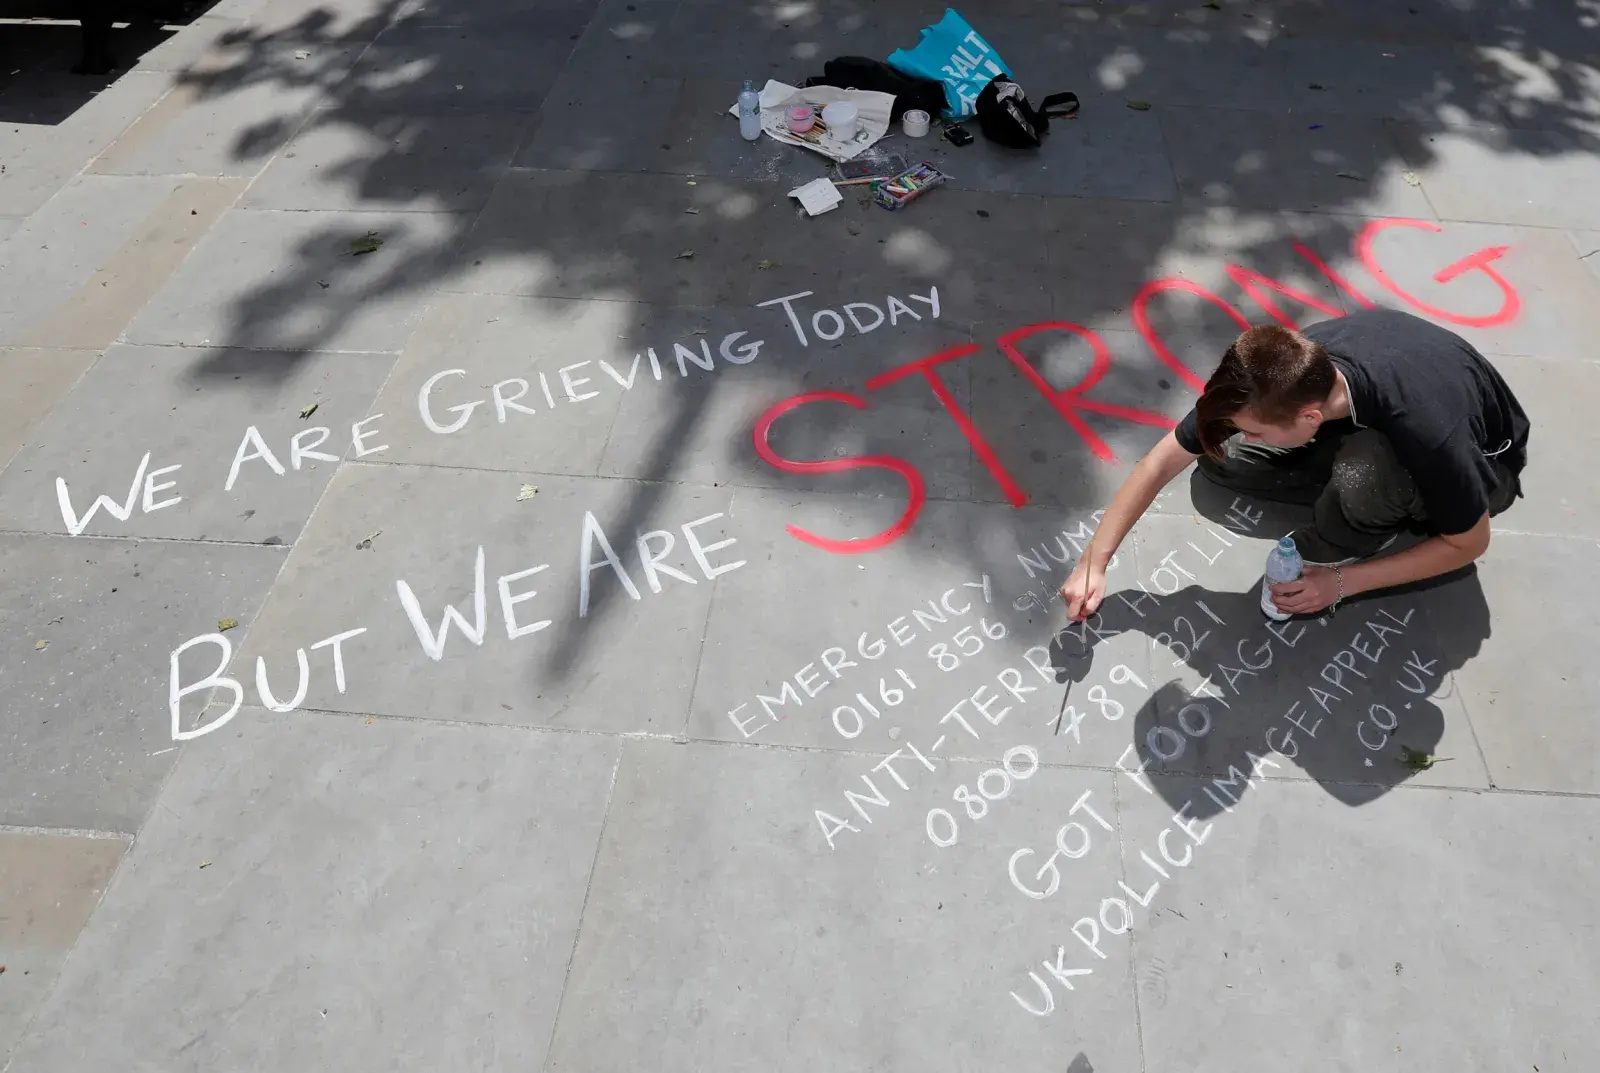 WE ARE GRIEVING TODAY
BUT WE ARE STRONG
EMERGENCY
0161 856
ANTI-TERROR HOT LINE
0800 789 321
GOT FOOTAGE
UKPOLICEIMAGEAPPEAL
.CO.UK